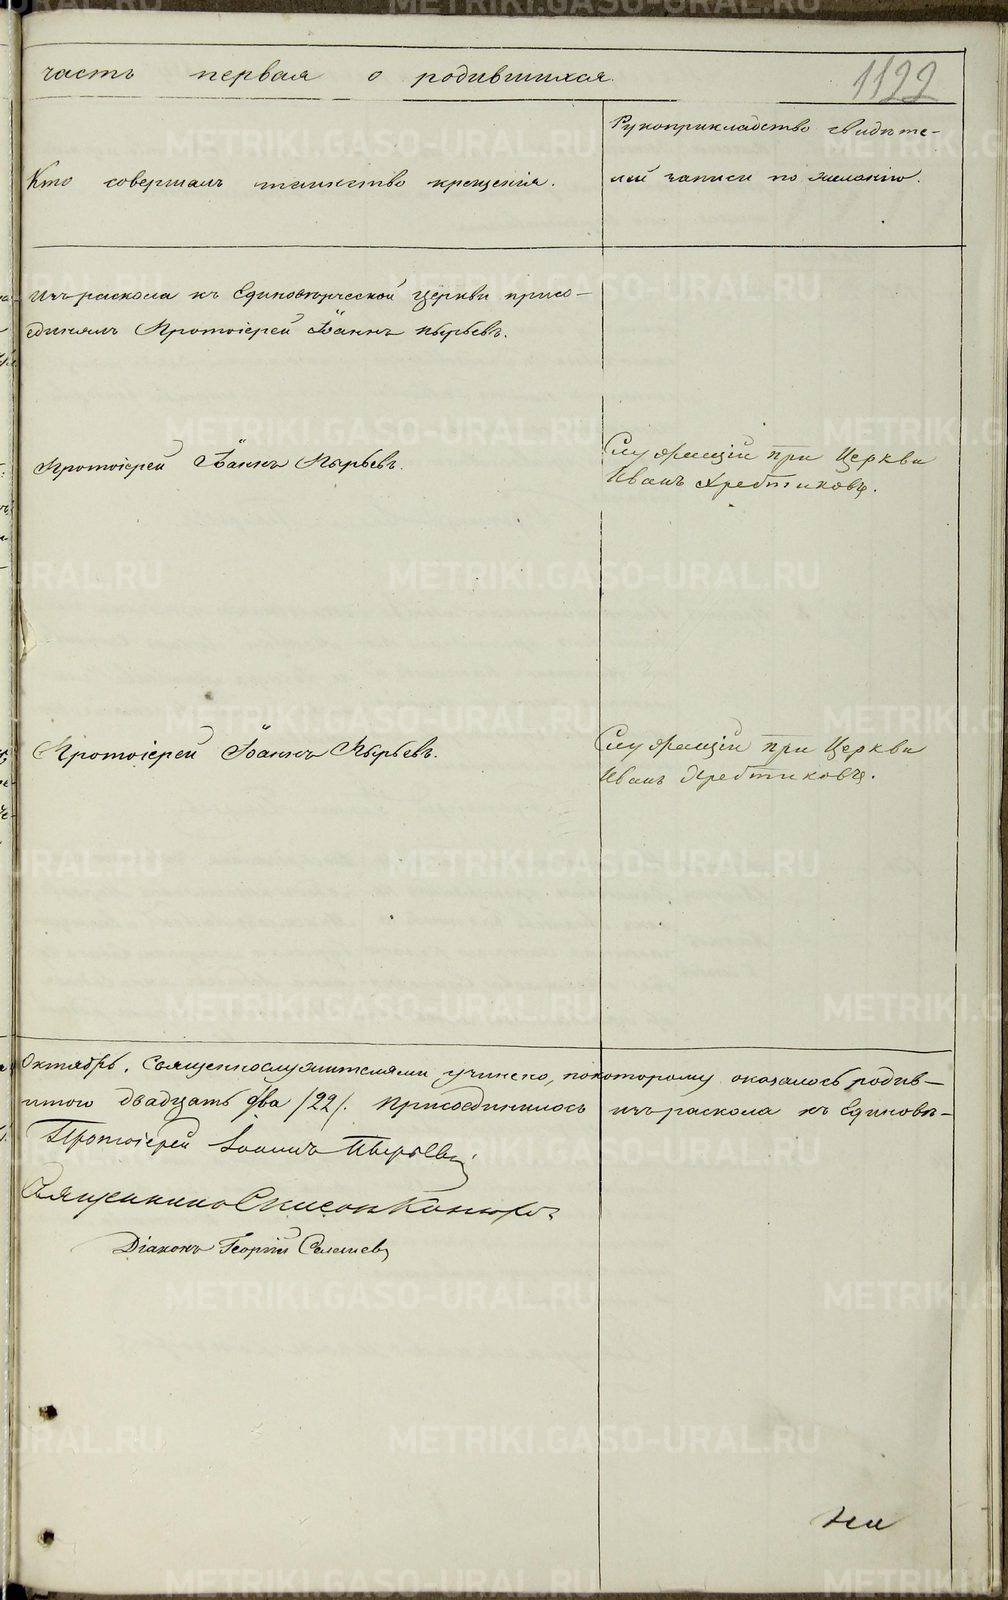 часть первая о родившихся.
1122
Кто совершалъ таинство крещенія.
Рукоприкладство свидѣте-
лей записи по желанію.
Изъ раскола къ Единовѣрческой Церкви присо-
единялъ Протоіерей Іоаннъ Пырьевъ.
Протоіерей Іоаннъ Пырьевъ.
Служащій при Церкви
Иванъ Хребтиковъ.
Протоіерей Іоаннъ Пырьевъ.
Служащій при Церкви
Иванъ Хребтиковъ.
Октябрь. Священнослужителями учинено, по которому оказалось родив-
шихся двадцать два /22/. Присоединилось изъ раскола къ Единовѣ-
Протоіерей Іоаннъ Пырьевъ
Священникъ Симеонъ
Діаконъ Георгій
METRIKI.GASO-URAL.RU